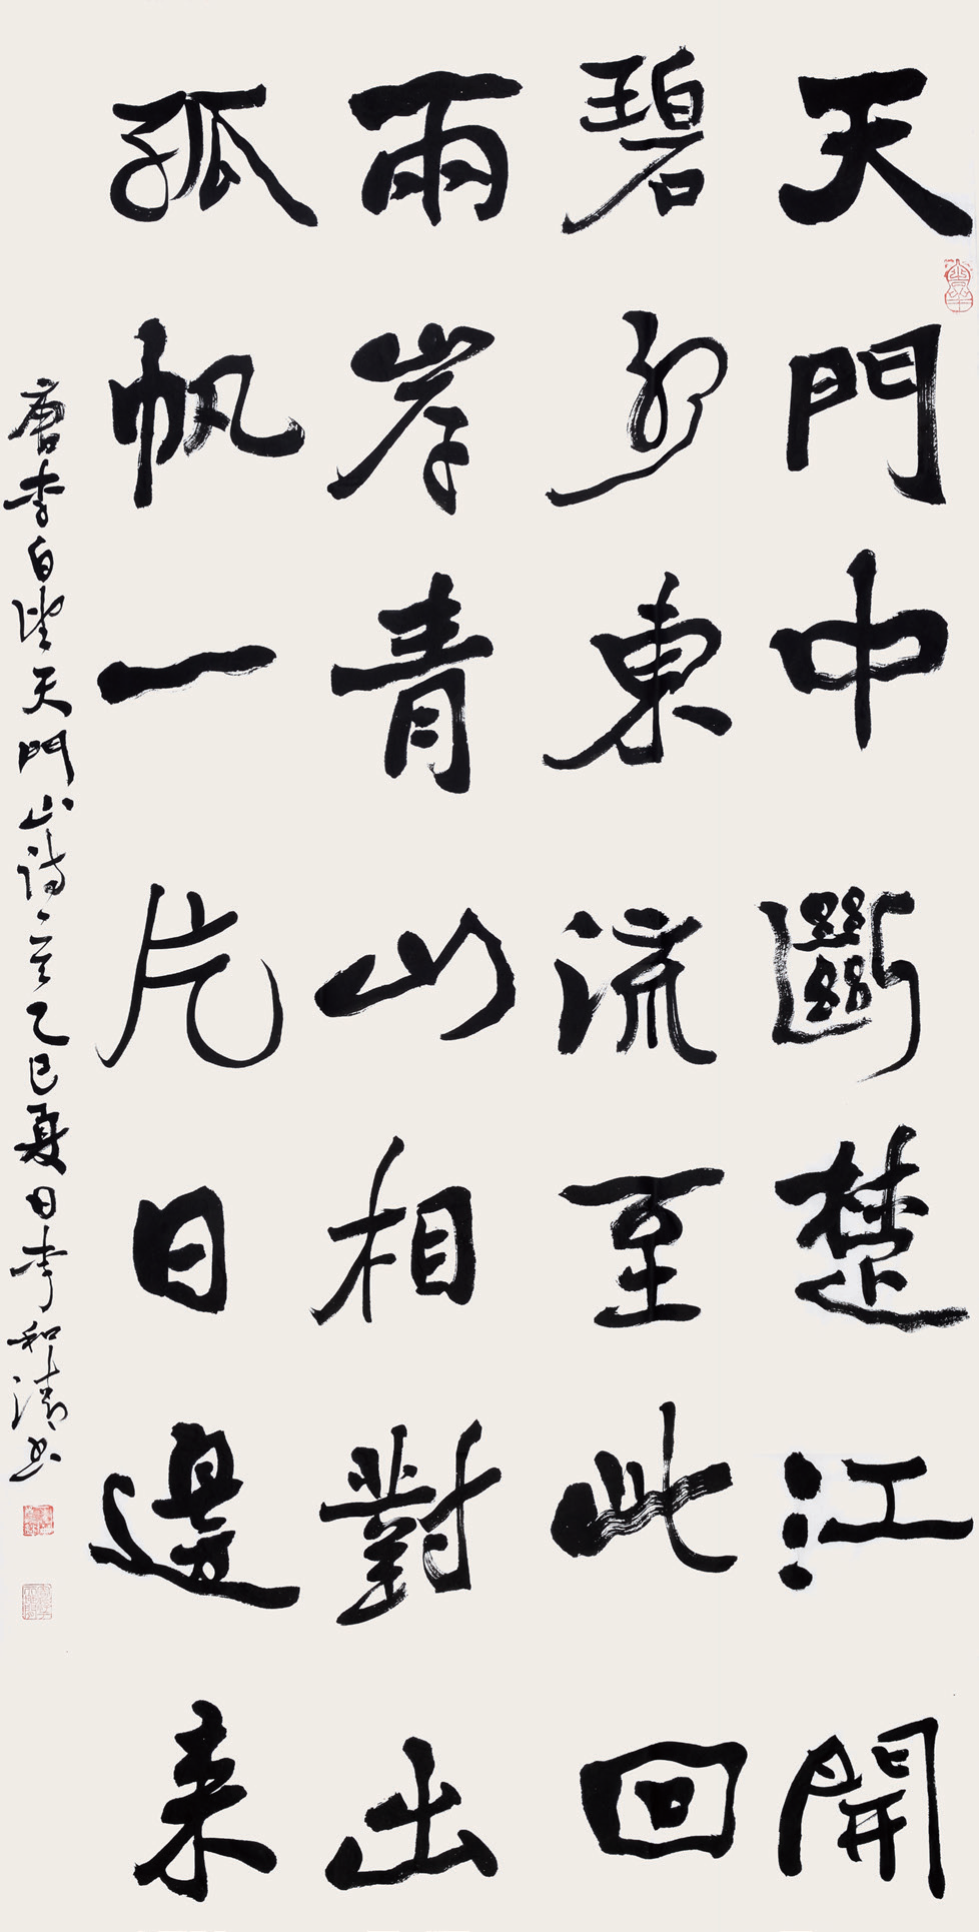 天門中斷楚江開
碧水東流至此回
兩岸青山相對出
孤帆一片日邊来
唐李白望天門山詩一首乙巳夏日李和清书